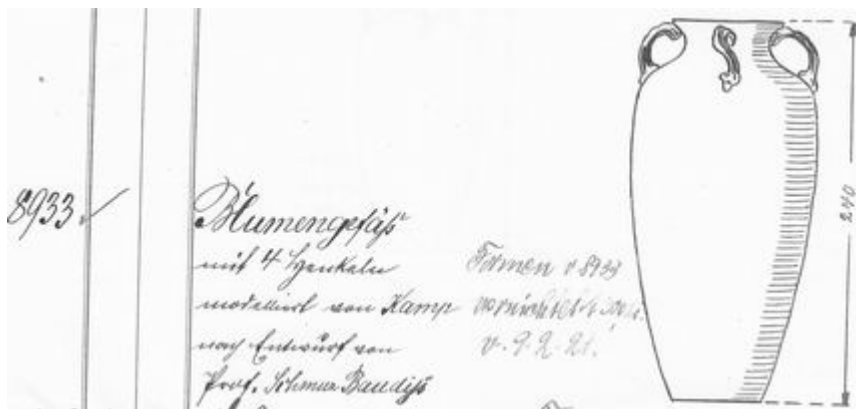 8933.
Blumengefäß
mit 4 Henkeln
modelliert von Kamp
nach Entwurf von
Prof. Schmuz Baudiß
Formen v 8933
vernichtet
v. 9. 2. 21.
240